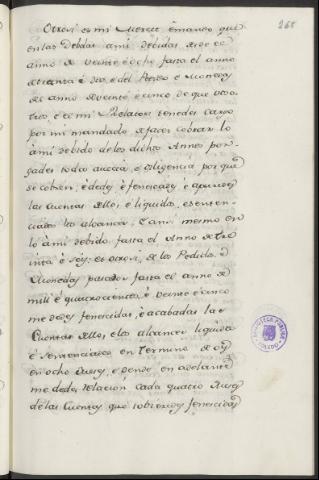 268
Otrosi es mi Merced e mando que
en las Debdas a mi debidas desde el
anno de veinte e ocho fasta el anno
de treinta e dos, e del Pedido e Monedas
del anno de veinte e cinco de que voso
tros, e el mi Relator tenedes cargo
por mi mandado de facer cobrar lo
a mi debido de los dichos Annos pon-
gades toda acucia, e diligencia porque
se cobren, e dedes e fenescades, e apuredes
las cuentas dello, e liquides, e senten-
ciades los alcances. E ansi mesmo en
lo a mi debido fasta el Anno de tre
inta e seys: et otrosi, de los Pedidos e
Monedas pasados fasta el anno de
mill e quatrocientos, e veinte e cinco
me dedes fenecidas, e acabadas las
Cuentas dellos, e los alcances liquidos
e sentenciados en termino de oy
en ocho Meses, e dende en adelante
me dedes relacion cada quatro Meses
de las Cuentas que tobieredes fenecidas
BIBLIOTECA PUBLICA
TOLEDO